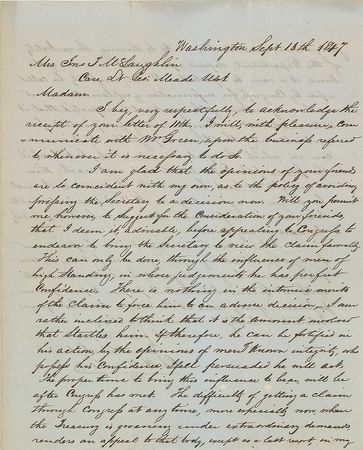 Washington Sept 13th 1847
Mrs Jno T McLaughlin
Care, Lt Geo: Meade USA
Madam
I beg, very respectfully, to acknowledge the
receipt of your letter of 11th. I will, with pleasure, com
municate with Mr Green, upon the business refered
to whenever it is necessary to do so.
I am glad that the opinions of your friends
are so coincident with my own, as to the policy of avoiding
pressing the Secretary to a decision now. Will you permit
me, however, to suggest for the Consideration of your friends,
that I deem it advisable, before appealing to Congress to
endeavor to bring the Secretary to view the claim favorably
This can only be done, through the influence of men of
high Standing, in whose judgements he has perfect
Confidence. There is nothing in the intrinsic merits
of the Claim to force him to an adverse decision, I am
rather inclined to think that it is the amount involved
that Startles him. If therefore, he can be fortified in
his action, by the opinions of men of known integrity, who
possess his Confidence, I feel persuaded he will act.
The proper time to bring this influence to bear, will be
after Congress has met. The difficulty of getting a claim
through Congress at any time, more especially now, when
the Treasury is groaning under extraordinary demands
renders an appeal to that body, except as a last resort, in my